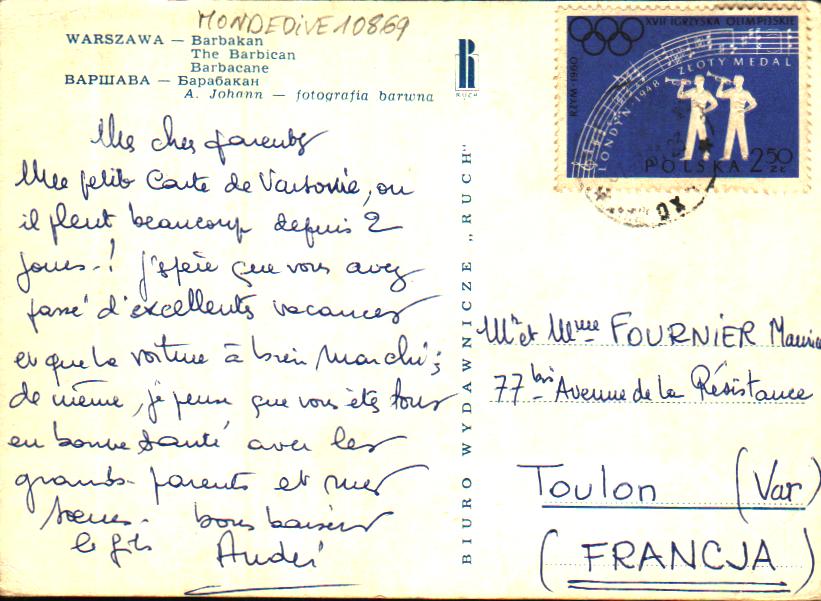 MONDEDIVE10869
WARSZAWA — Barbakan
The Barbican
Barbacane
ВАРШАВА — Барабакан
A. Johann — fotografia barwna
RUCH
BIURO WYDAWNICZE „RUCH"
XVII IGRZYSKA OLIMPIJSKIE
RZYM-1960
LONDYN-1948 ZŁOTY MEDAL
POLSKA 250 ZŁ
Mes chers parents
Une petite Carte de Varsovie, ou
il pleut beaucoup depuis 2
jours-! j'espère que vous avez
passé d'excellentes vacances
et que la voiture à bien marché;
de même, je pense que vous êtes tous
en bonne santé avec les
grands-parents et mes
sœurs. bons baisers
le fils André
Mr et Mme FOURNIER Maurice
77 bis Avenue de la Résistance
Toulon (Var)
(FRANCJA)